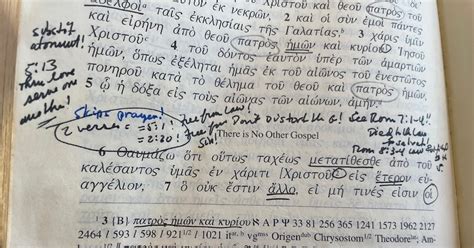 ἀδελφοὶ ταῖς ἐκκλησίαις τῆς Γαλατίας,
ἐκ νεκρῶν, 2 καὶ οἱ σὺν ἐμοὶ πάντες
καὶ εἰρήνη ἀπὸ θεοῦ πατρὸς ἡμῶν καὶ κυρίου Ἰησοῦ
3 χάρις ὑμῖν
Χριστοῦ 4 τοῦ δόντος ἑαυτὸν ὑπὲρ τῶν ἁμαρτιῶν
ἡμῶν, ὅπως ἐξέληται ἡμᾶς ἐκ τοῦ αἰῶνος τοῦ ἐνεστῶτος
πονηροῦ κατὰ τὸ θέλημα τοῦ θεοῦ καὶ πατρὸς ἡμῶν,
5 ᾧ ἡ δόξα εἰς τοὺς αἰῶνας τῶν αἰώνων, ἀμήν.
atonement!
5:13
Thru love
serve one
another!
Skips prayer!
2 verses = 5:1!
= 2:20!
free from Law!
free for
Don't distort the G!
Sin!
See Rom 7:1-4!
Died to the Law
Rom 8:3-4
There is No Other Gospel
6 Θαυμάζω ὅτι οὕτως ταχέως μετατίθεσθε ἀπὸ τοῦ
καλέσαντος ὑμᾶς ἐν χάριτι [Χριστοῦ] εἰς ἕτερον εὐ-
αγγέλιον, 7 ὃ οὐκ ἔστιν ἄλλο, εἰ μή τινές εἰσιν οἱ
3 {B} πατρὸς ἡμῶν καὶ κυρίου א A P Ψ 33 81 256 365 1241 1573 1962 2127
2464 / 593 / 598 / 921 1/2 / 1021 it vg Origen Chrysostom Theodore